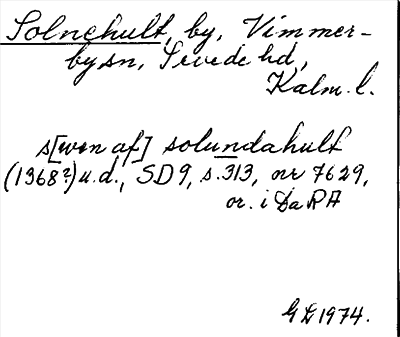 Solnehult, by, Vimmer-
bysn, Sevede hd,
Kalm. l.
s[wen af] solundahult
(1368?) u.d., SD 9, s. 313, nr 7629,
or. i DaRA
GL 1974.